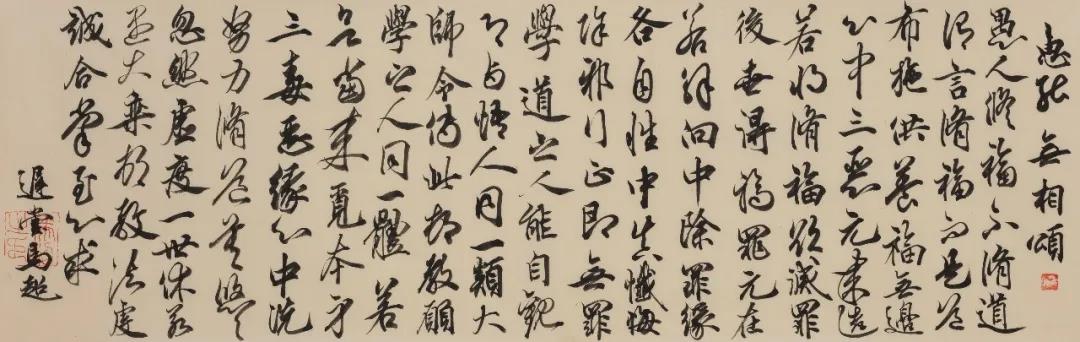 惠能 無相頌
愚人修福不脩道
謂言脩福而是道
布施供養福無邊
心中三惡元來造
若將脩福欲滅罪
後世得福罪元在
若解向中除罪緣
各自性中真懺悔
除邪行正即無罪
學道之人能自觀
即與悟人同一類大
師令傳此頓教願
學之人同一體若
欲當來覓本身
三毒惡緣心中洗
努力脩道莫悠悠
忽然虛度一世休若
遇大乘頓教法虔
誠合掌至心求
遲堂馬超